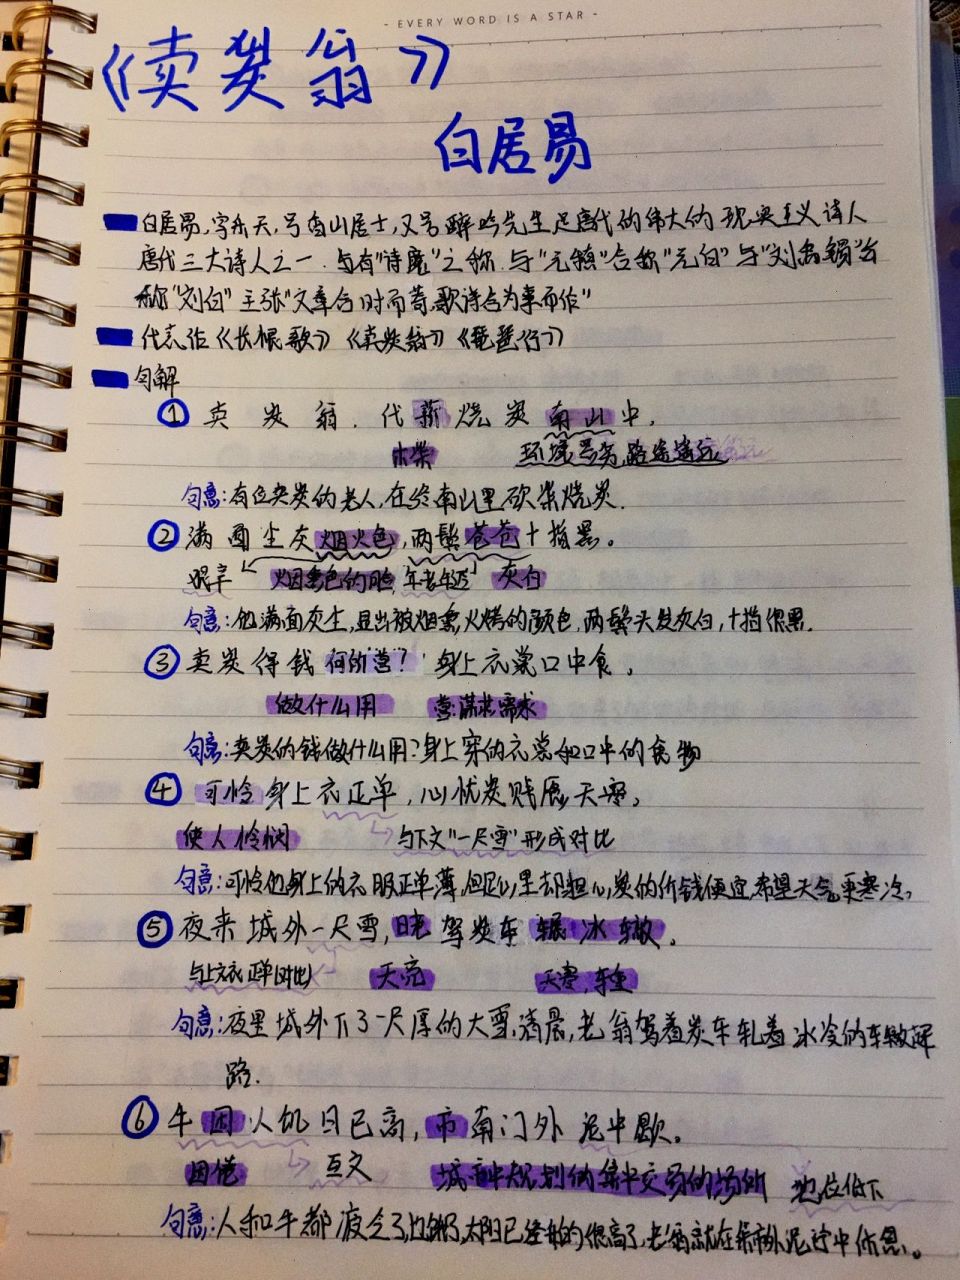 - EVERY WORD IS A STAR -
《卖炭翁》
白居易
白居易,字乐天,号香山居士,又号醉吟先生是唐代的伟大的现实主义诗人
唐代三大诗人之一.与有"诗魔"之称.与"元稹"合称"元白"与"刘禹锡"合
称"刘白"主张"文章合时而著,歌诗合为事而作"
代表作《长恨歌》《卖炭翁》《琵琶行》
句解
① 卖炭翁.代薪烧炭南山中,
木柴 环境恶劣,路途遥远
句意:有位卖炭的老人,在终南山里砍柴烧炭.
② 满面尘灰烟火色,两鬓苍苍十指黑。
艰辛 烟熏色的脸 年老年迈 灰白
句意:他满面灰尘,显出被烟熏火烤的颜色,两鬓头发灰白,十指很黑.
③ 卖炭得钱何所营?身上衣裳口中食,
做什么用 营:谋求需求
句意:卖炭的钱做什么用?身上穿的衣裳和口中的食物
④ 可怜身上衣正单,心忧炭贱愿天寒,
使人怜悯 与下文"一尺雪"形成对比
句意:可怜他身上的衣服正单薄,但心里却担心炭的价钱便宜,希望天气更寒冷,
⑤ 夜来城外一尺雪,晓驾炭车辗冰辙.
与上文衣正单对比 天亮 天寒,车重
句意:夜里城外下了一尺厚的大雪,清晨,老翁驾着炭车轧着冰冷的车辙
路.
⑥ 牛困人饥日已高,市南门外泥中歇。
困倦 互文 城市中规划的集中交易的场所 地位低下
句意:人和牛都疲乏了,也饿了,太阳已经升的很高了,老翁就在集市外泥泞中休息。